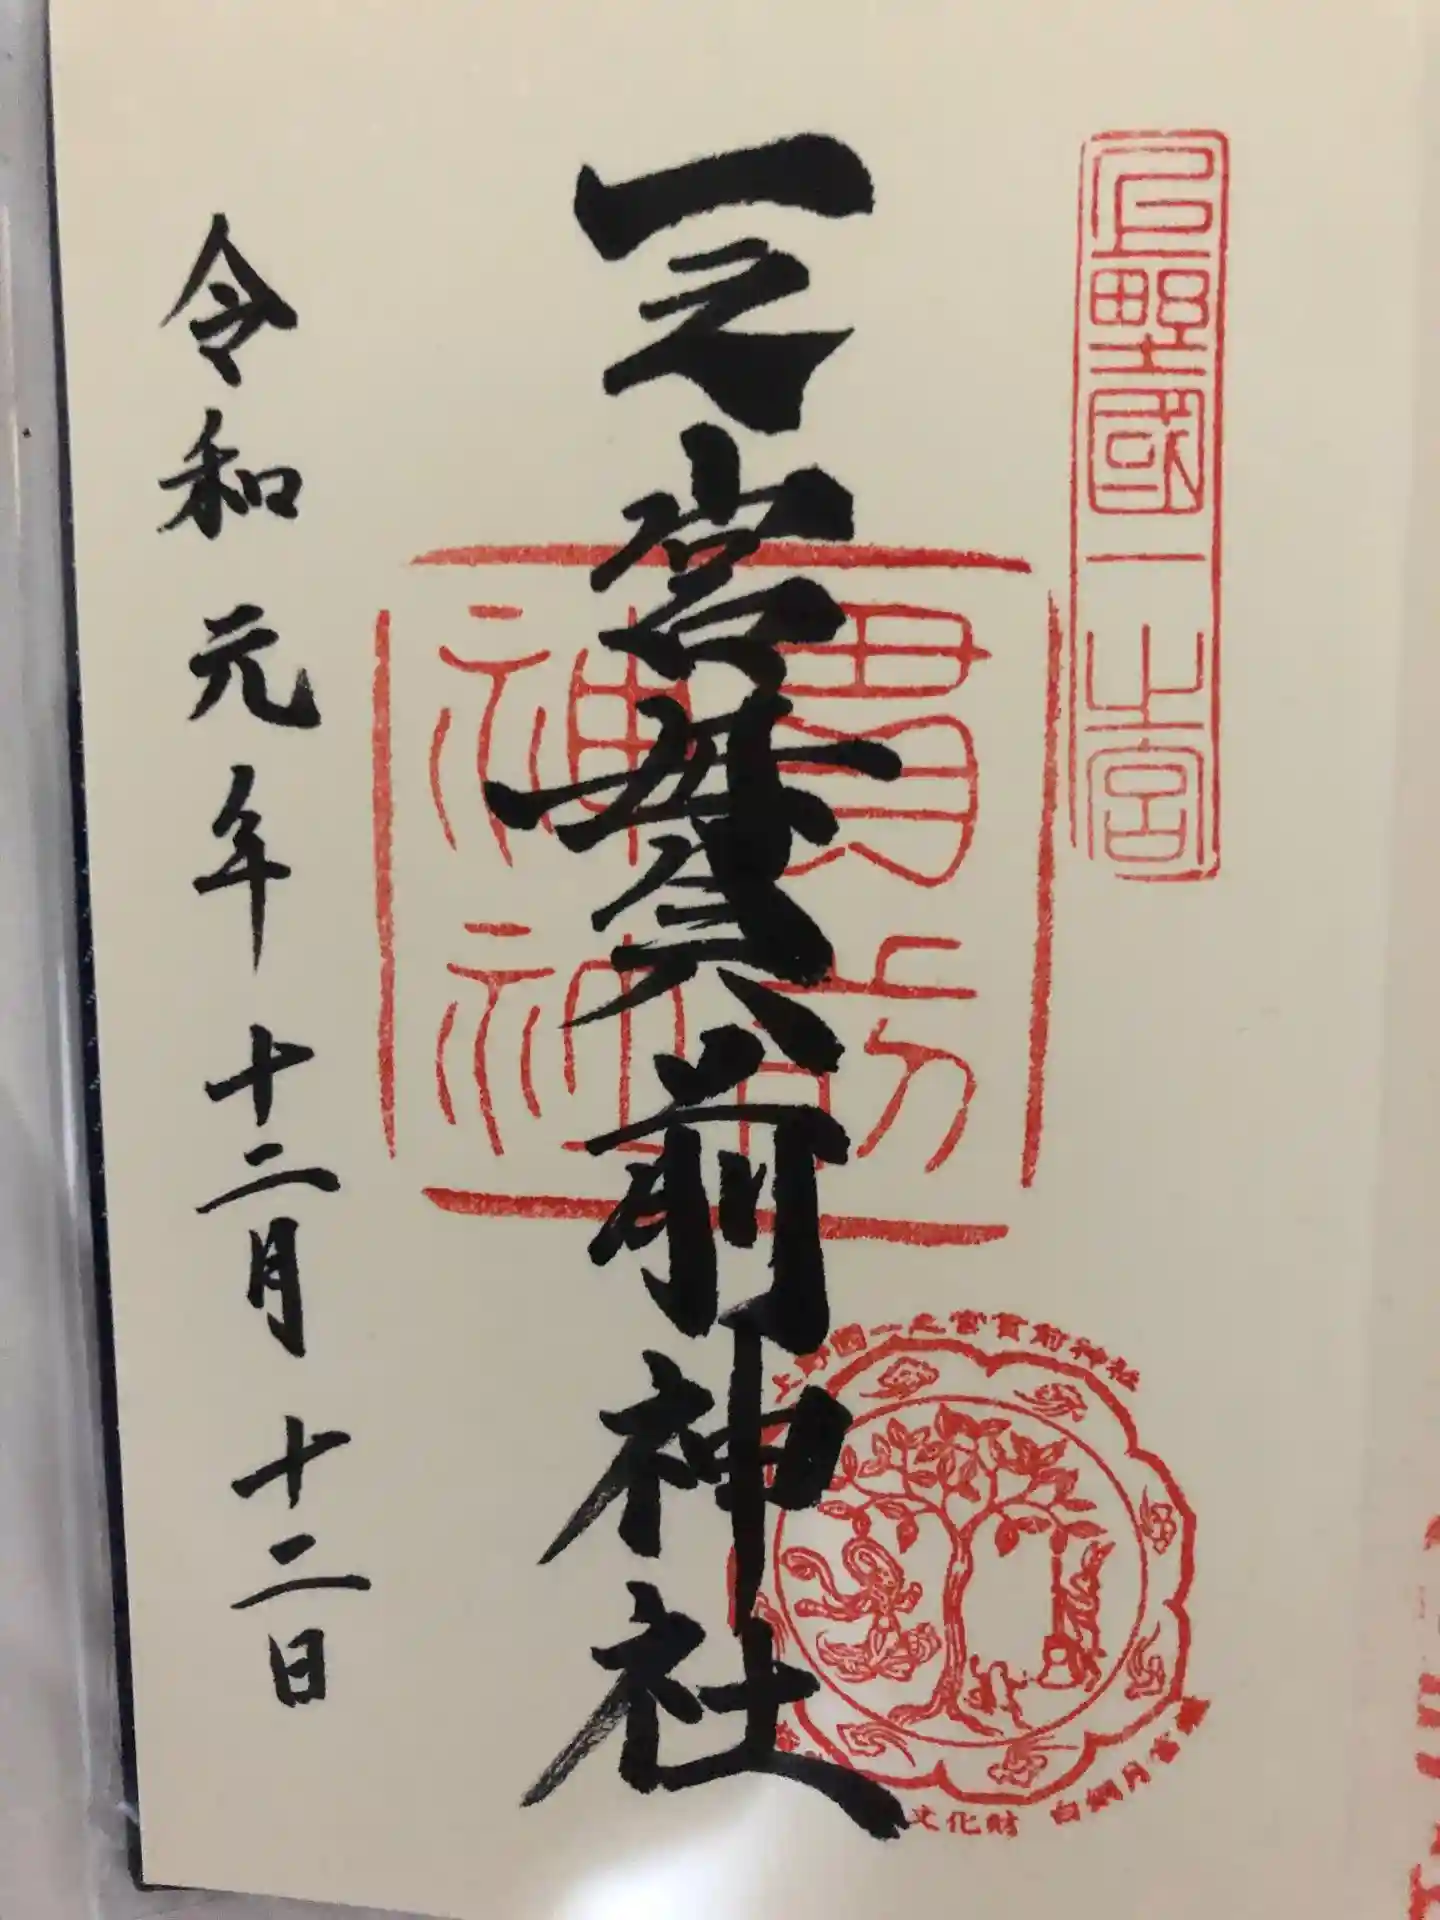 上野國一之宮
一之宮貫前神社
貫前
神社
令和元年十二月十二日
野國一之宮貫前神社
文化財 白銅月宮鑑